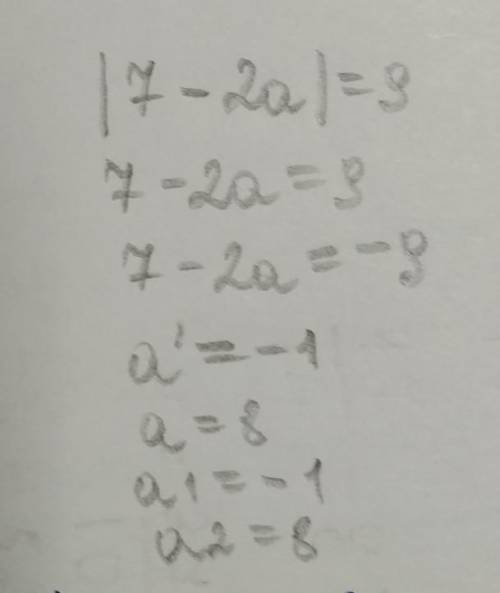 |7 - 2a| = 9
7 - 2a = 9
7 - 2a = - 9
a' = - 1
a = 8
a1 = - 1
a2 = 8